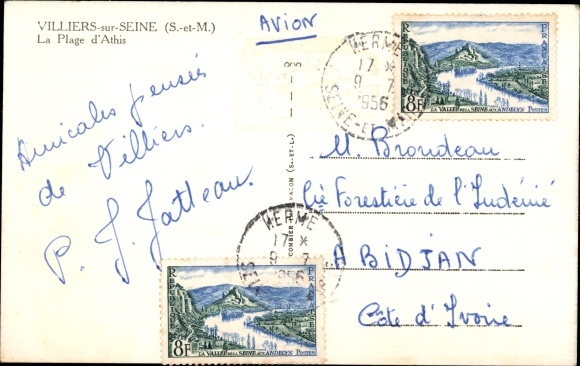 VILLIERS-sur-SEINE (S.-et-M.)
La Plage d'Athis
AVION
Amicales pensées
de Villiers.
P. J. Jatteau.
HERME
17 *
9 7
1956
SEINE-ET-M
REPUBLIQUE FRANÇAISE
8F
LA VALLEE DE LA SEINE AUX ANDELYS POSTES
COMBIER MACON (S.-ET-L.)
M. Brondeau
Cie Forestière de l'Indénié
ABIDJAN
Côte d'Ivoire
HERME
17 *
9 7
1956
REPUBLIQUE FRANÇAISE
8F
LA VALLEE DE LA SEINE AUX ANDELYS POSTES